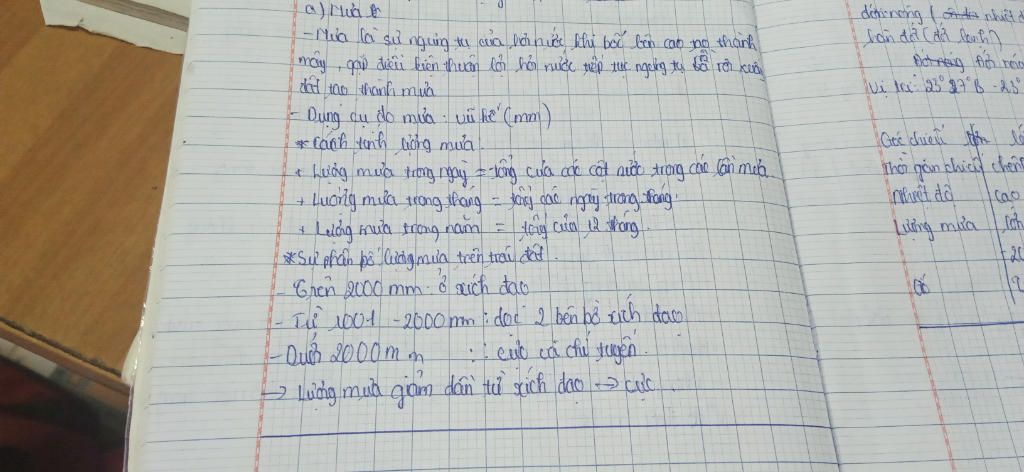 a) Mưa
- Mưa là sự ngưng tụ của hơi nước khi bốc lên cao ng thành
mây, gặp điều kiện thuận lợi hơi nước tiếp tục ngưng tụ rồi rơi xuống
đất tạo thành mưa
- Dụng cụ đo mưa: vũ kế (mm)
* Cách tính lượng mưa:
+ Lượng mưa trong ngày = tổng của các cột nước trong các lần mưa.
+ Lượng mưa trong tháng = tổng các ngày trong tháng.
+ Lượng mưa trong năm = tổng của 12 tháng.
* Sự phân bố lượng mưa trên trái đất.
- Trên 2000 mm: ở xích đạo
- Từ 1001 - 2000 mm: dọc 2 bên bờ xích đạo
- Dưới 2000 mm : cực và chí tuyến.
→ Lượng mưa giảm dần từ xích đạo → cực.
đới nóng ( nhiệt đ
lạnh)
Đới nóng
Vị trí: 23° 27' B - 23°
Góc chiếu lớ
Thời gian chiếu chên
Nhiệt độ cao
Lượng mưa lớn